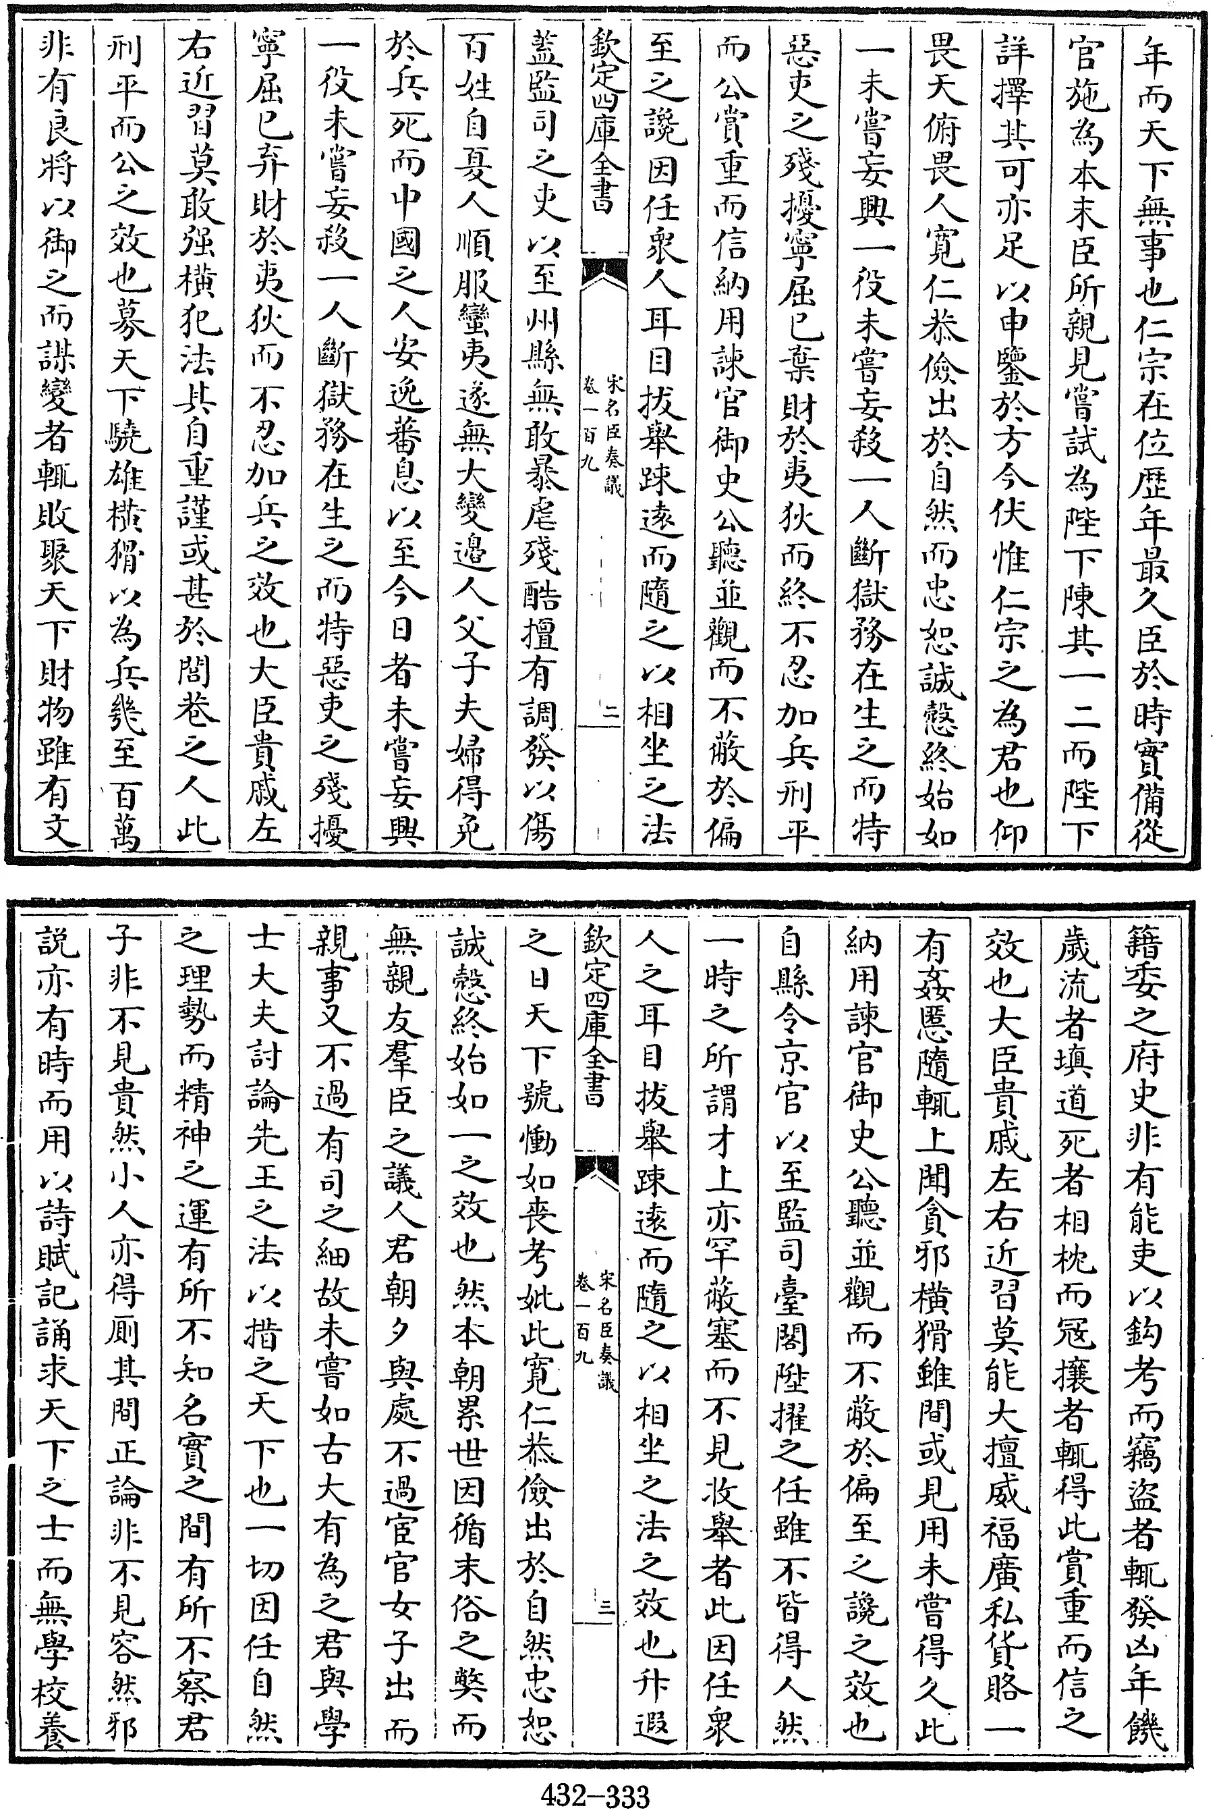 年而天下無事也仁宗在位歴年最久臣於時實備從
官施為本末臣所親見嘗試為陛下陳其一二而陛下
詳擇其可亦足以申鑒於方今伏惟仁宗之為君也仰
畏天俯畏人寛仁恭儉出於自然而忠恕誠慤終始如
一未嘗妄興一役未嘗妄殺一人斷獄務在生之而特
惡吏之殘擾寧屈已棄財於夷狄而終不忍加兵刑平
而公賞重而信納用諫官御史公聽並觀而不蔽於偏
至之讒因任衆人耳目拔舉踈逺而隨之以相坐之法
欽定四庫全書
宋名臣奏議
卷一百九
二
蓋監司之吏以至州縣無敢暴虐殘酷擅有調發以傷
百姓自夏人順服蠻夷遂無大變邉人父子夫婦得免
於兵死而中國之人安逸蕃息以至今日者未嘗妄興
一役未嘗妄殺一人斷獄務在生之而特惡吏之殘擾
寧屈已弃財於夷狄而不忍加兵之效也大臣貴戚左
右近習莫敢强横犯法其自重謹或甚於閭巷之人此
刑平而公之效也募天下驍雄横猾以為兵幾至百萬
非有良將以御之而謀變者輒敗聚天下財物雖有文
籍委之府史非有能吏以鈎考而竊盗者輒發凶年饑
歲流者填道死者相枕而冦攘者輒得此賞重而信之
效也大臣貴戚左右近習莫能大擅威福廣私貨賂一
有姦慝隨輒上聞貪邪横猾雖間或見用未嘗得久此
納用諫官御史公聽並觀而不蔽於偏至之讒之效也
自縣令京官以至監司臺閣陞擢之任雖不皆得人然
一時之所謂才上亦罕蔽塞而不見收舉者此因任衆
人之耳目拔舉踈逺而隨之以相坐之法之效也升遐
欽定四庫全書
宋名臣奏議
卷一百九
三
之日天下號慟如喪考妣此寛仁恭儉出於自然忠恕
誠慤終始如一之效也然本朝累世因循末俗之弊而
無親友羣臣之議人君朝夕與處不過宦官女子出而
親事又不過有司之細故未嘗如古大有為之君與學
士大夫討論先王之法以措之天下也一切因任自然
之理勢而精神之運有所不知名實之間有所不察君
子非不見貴然小人亦得厠其間正論非不見容然邪
説亦有時而用以詩賦記誦求天下之士而無學校養
432-333